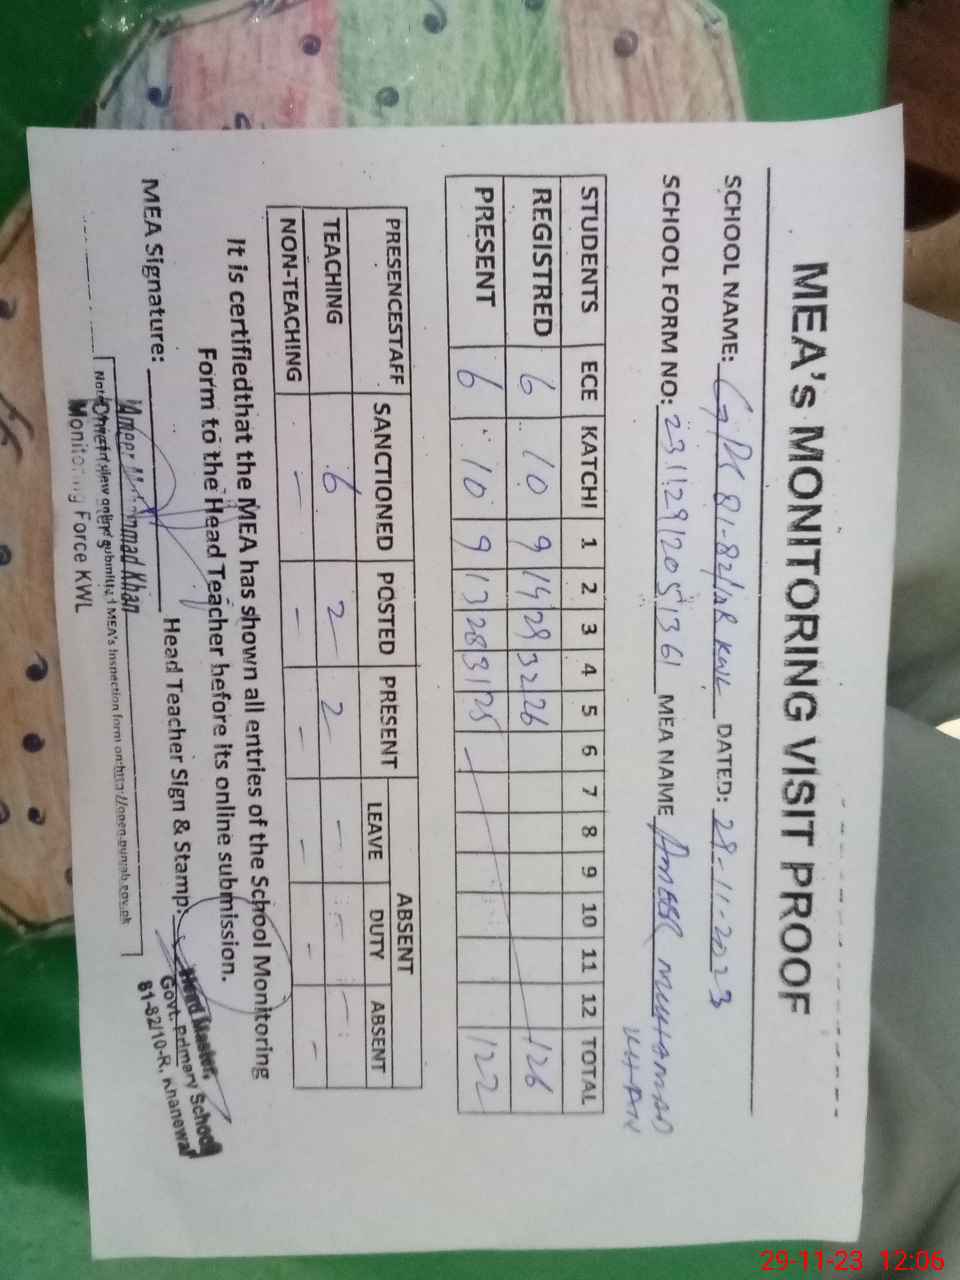 MEA's MONITORING VISIT PROOF
SCHOOL NAME: GPS 81-82/10R KWL DATED: 29-11-2023
SCHOOL FORM NO: 231129120551361 MEA NAME AMEER MUHAMMAD KHAN
STUDENTS ECE KATCHI 1 2 3 4 5 6 7 8 9 10 11 12 TOTAL
REGISTRED 6 10 9 14 29 32 26 126
PRESENT 6 10 9 13 28 31 25 122
PRESENCESTAFF SANCTIONED POSTED PRESENT ABSENT
LEAVE DUTY ABSENT
TEACHING 6 2 2 - - -
NON-TEACHING - - - - - -
It is certifiedthat the MEA has shown all entries of the School Monitoring
Form to the Head Teacher before its online submission.
MEA Signature: Head Teacher Sign & Stamp:
Ameer Muhammad Khan
Monitoring Force KWL
Note: submitted MEA's Inspection form on:http://open.punjab.gov.pk
Head Master,
Govt. Primary School
81-82/10-R, Khanewal
29-11-23 12:06